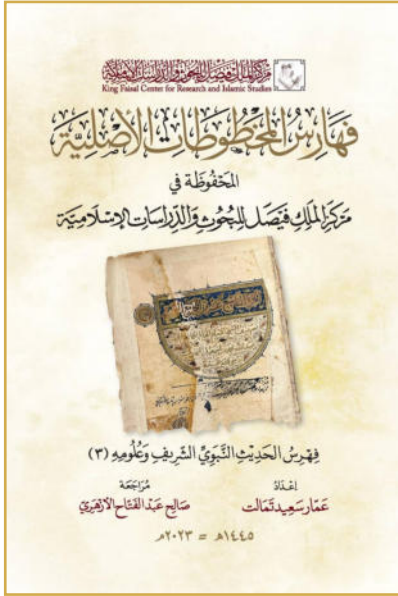 مركز الملك فيصل للبحوث والدراسات الإسلامية
King Faisal Center for Research and Islamic Studies
فَهَارِسُ المَخْطُوطَاتِ الأَصْلِيَّةِ
المَحْفُوظَة في
مَركَز المَلِك فَيْصَل لِلبُحُوثِ وَالدِّرَاسَاتِ الإِسْلَامِيَّة
فِهْرِسُ الحَدِيْثِ النَّبَوِيِّ الشَّرِيفِ وَعُلُومِهِ (٣)
إعْدَادُ
عَمَّار سَعِيد تَمَالت
مُرَاجَعَة
صَالِح عَبْد الفَتَّاح الأَزْهَرِيّ
١٤٤٥هـ = ٢٠٢٣م